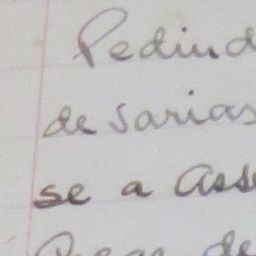 Pedind
de sarias
se a Ass
de